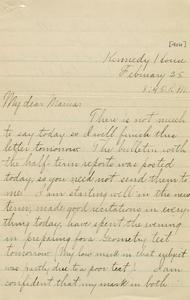 [1910]
Kennedy House
February 25
8:45 P.M.
My dear Mamas
There is not much
to say today so I will finish this
letter tomorrow. The bulletin with
the half-term reports was posted
today, so you need not send them to
me! I am starting well in the new
term, made good recitations in every-
thing today, have spent the evening
in preparing for a Geometry test
tomorrow. (My low mark in that subject
was partly due to a poor test.) I am
confident that my mark in both